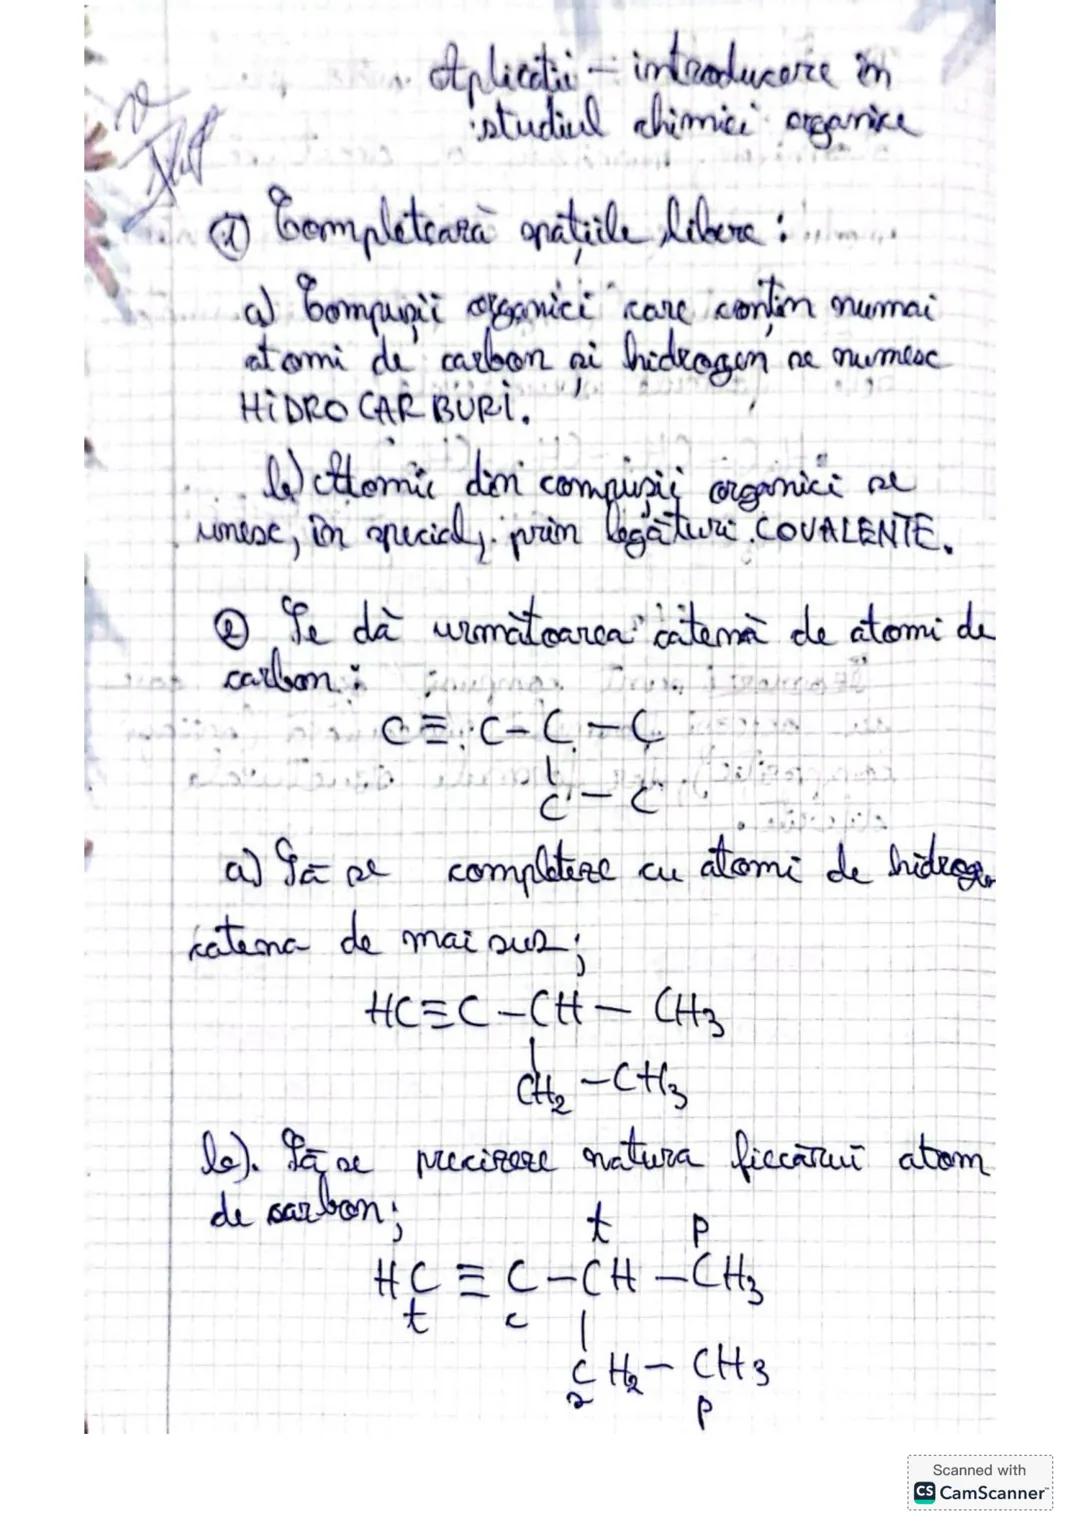 Aplicații – introducere în
studiul chimiei organice
① Completează spațiile libere :
a) Compușii organici care conțin numai
atomi de carbon și hidrogen se numesc
HIDROCARBURI.
b) Atomii din compușii organici se
unesc, în special, prin legături COVALENTE.
② Se dă următoarea catenă de atomi de
carbon :
C ≡ C – C – C
|
C – C
a) Să se completeze cu atomi de hidrog.
catena de mai sus ;
HC ≡ C – CH – CH₃
|
CH₂ – CH₃
b). Să se precizeze natura fiecărui atom
de carbon ;
t p
HC ≡ C – CH – CH₃
t c |
CH₂ – CH₃
s p
Scanned with
CS CamScanner